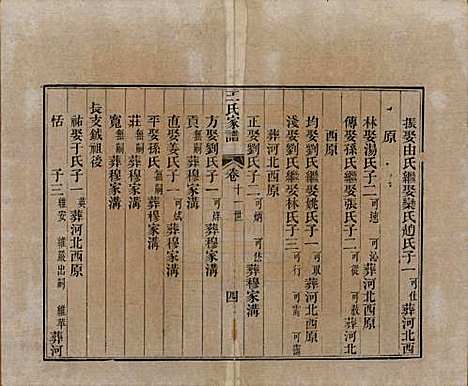 振娶由氏繼娶欒氏趙氏子一可仕葬河北西
原
林娶湯氏子二可地可沁葬河北西原
傳娶孫氏繼娶張氏子二可從可葬河北
西原
均娶劉氏繼娶姚氏子一可取葬河北西原
淺娶劉氏繼娶林氏子三可行可可南
葬河北西原
正娶劉氏子二可炳可葬穆家溝
王氏家譜 卷 十一世 四
方娶劉氏子一可葬穆家溝
貢無嗣葬穆家溝
直娶姜氏子一可斌葬穆家溝
平娶孫氏無嗣葬穆家溝
莊無嗣葬穆家溝
寬無嗣葬穆家溝
長支鉞祖後
祐娶于氏子一英葬河北西原
恬 子三維安維嚴出嗣維華葬河